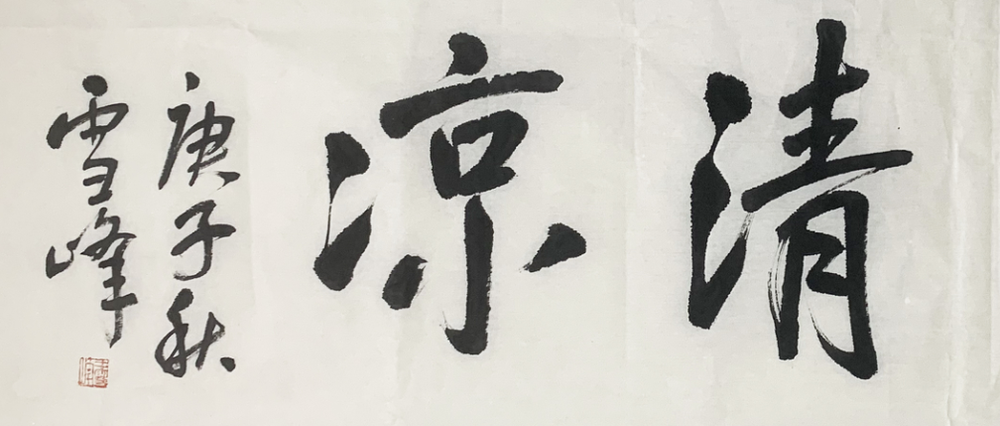 清凉
庚子秋
雪峰